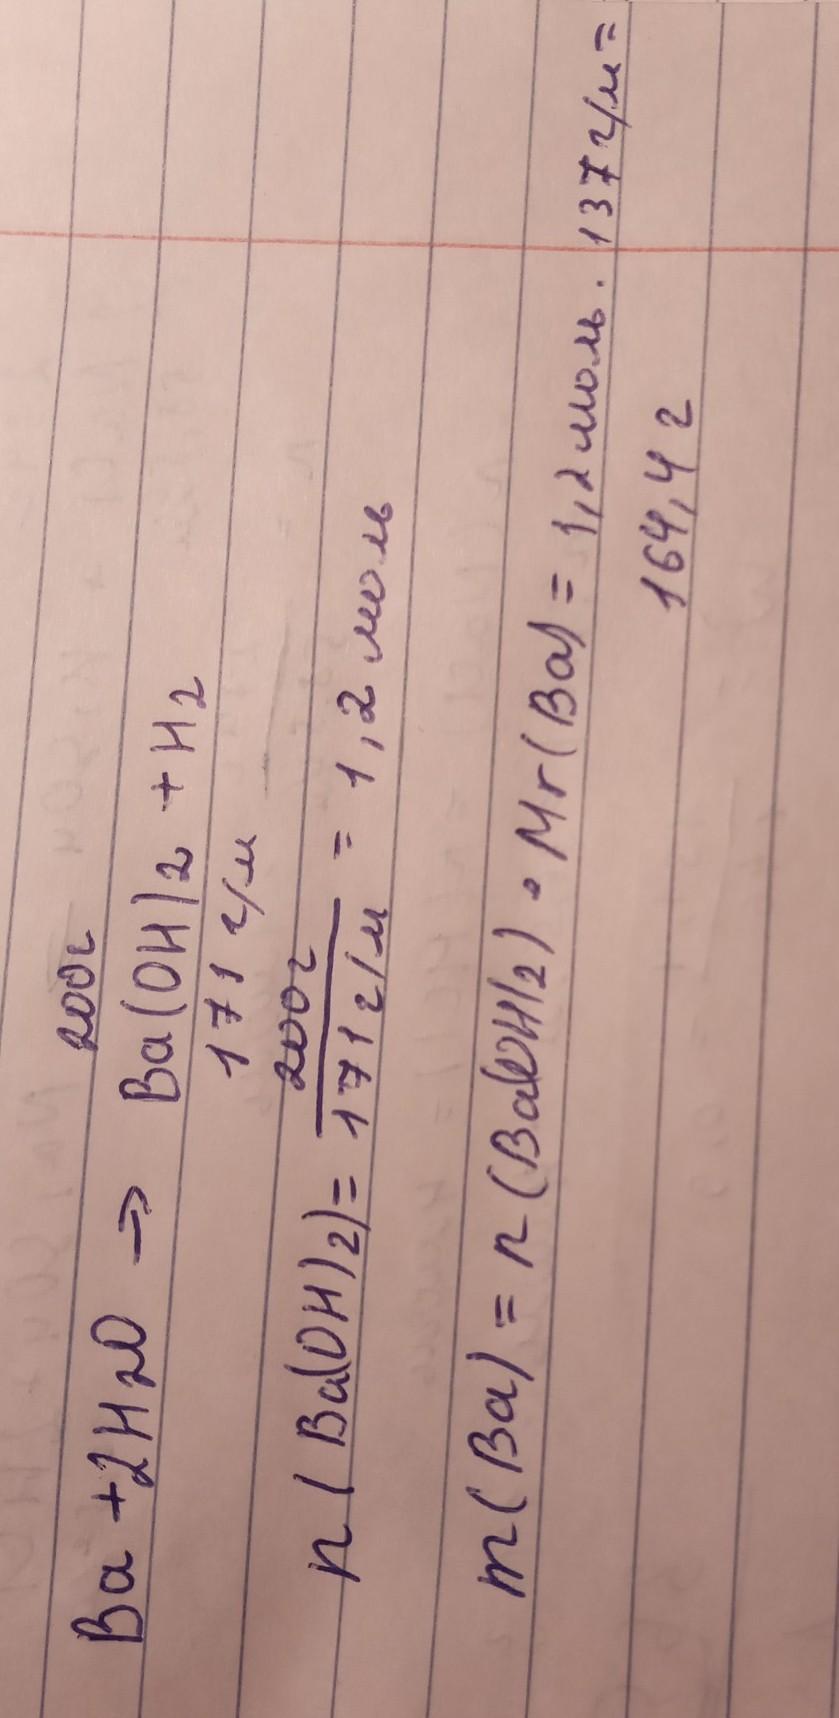 200г
Ba + 2H2O → Ba(OH)2 + H2
171 г/м
n(Ba(OH)2) = 200г / 171г/м = 1,2 моль
m(Ba) = n(Ba(OH)2) · Mr(Ba) = 1,2 моль · 137 г/м =
164,4 г